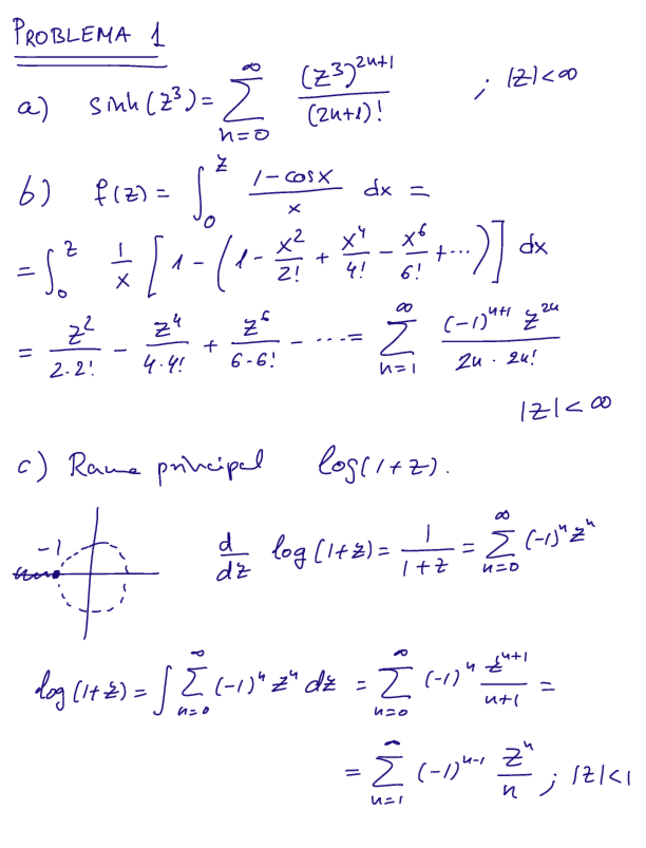 PROBLEMA 1
a) sinh(z³) = ∑_{n=0}^{∞} (z³)^{2n+1} / (2n+1)! ; |z|<∞
b) f(z) = ∫_0^z (1-cosx)/x dx =
= ∫_0^z 1/x [1-(1- x²/2! + x⁴/4! - x⁶/6! + ⋯)] dx
= z²/(2·2!) - z⁴/(4·4!) + z⁶/(6·6!) - ⋯ = ∑_{n=1}^{∞} (-1)^{n+1} z^{2n} / (2n · 2n!)
|z|<∞
c) Rama principal log(1+z).
-1 d/dz log(1+z) = 1/(1+z) = ∑_{n=0}^{∞} (-1)^n z^n
log(1+z) = ∫ ∑_{n=0}^{∞} (-1)^n z^n dz = ∑_{n=0}^{∞} (-1)^n z^{n+1}/(n+1) =
= ∑_{n=1}^{∞} (-1)^{n-1} z^n/n ; |z|<1